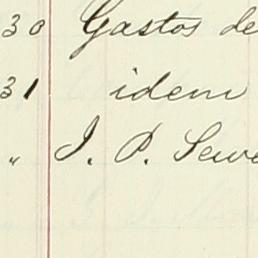 30 Gastos de
31 idem
" J. P. Sewe